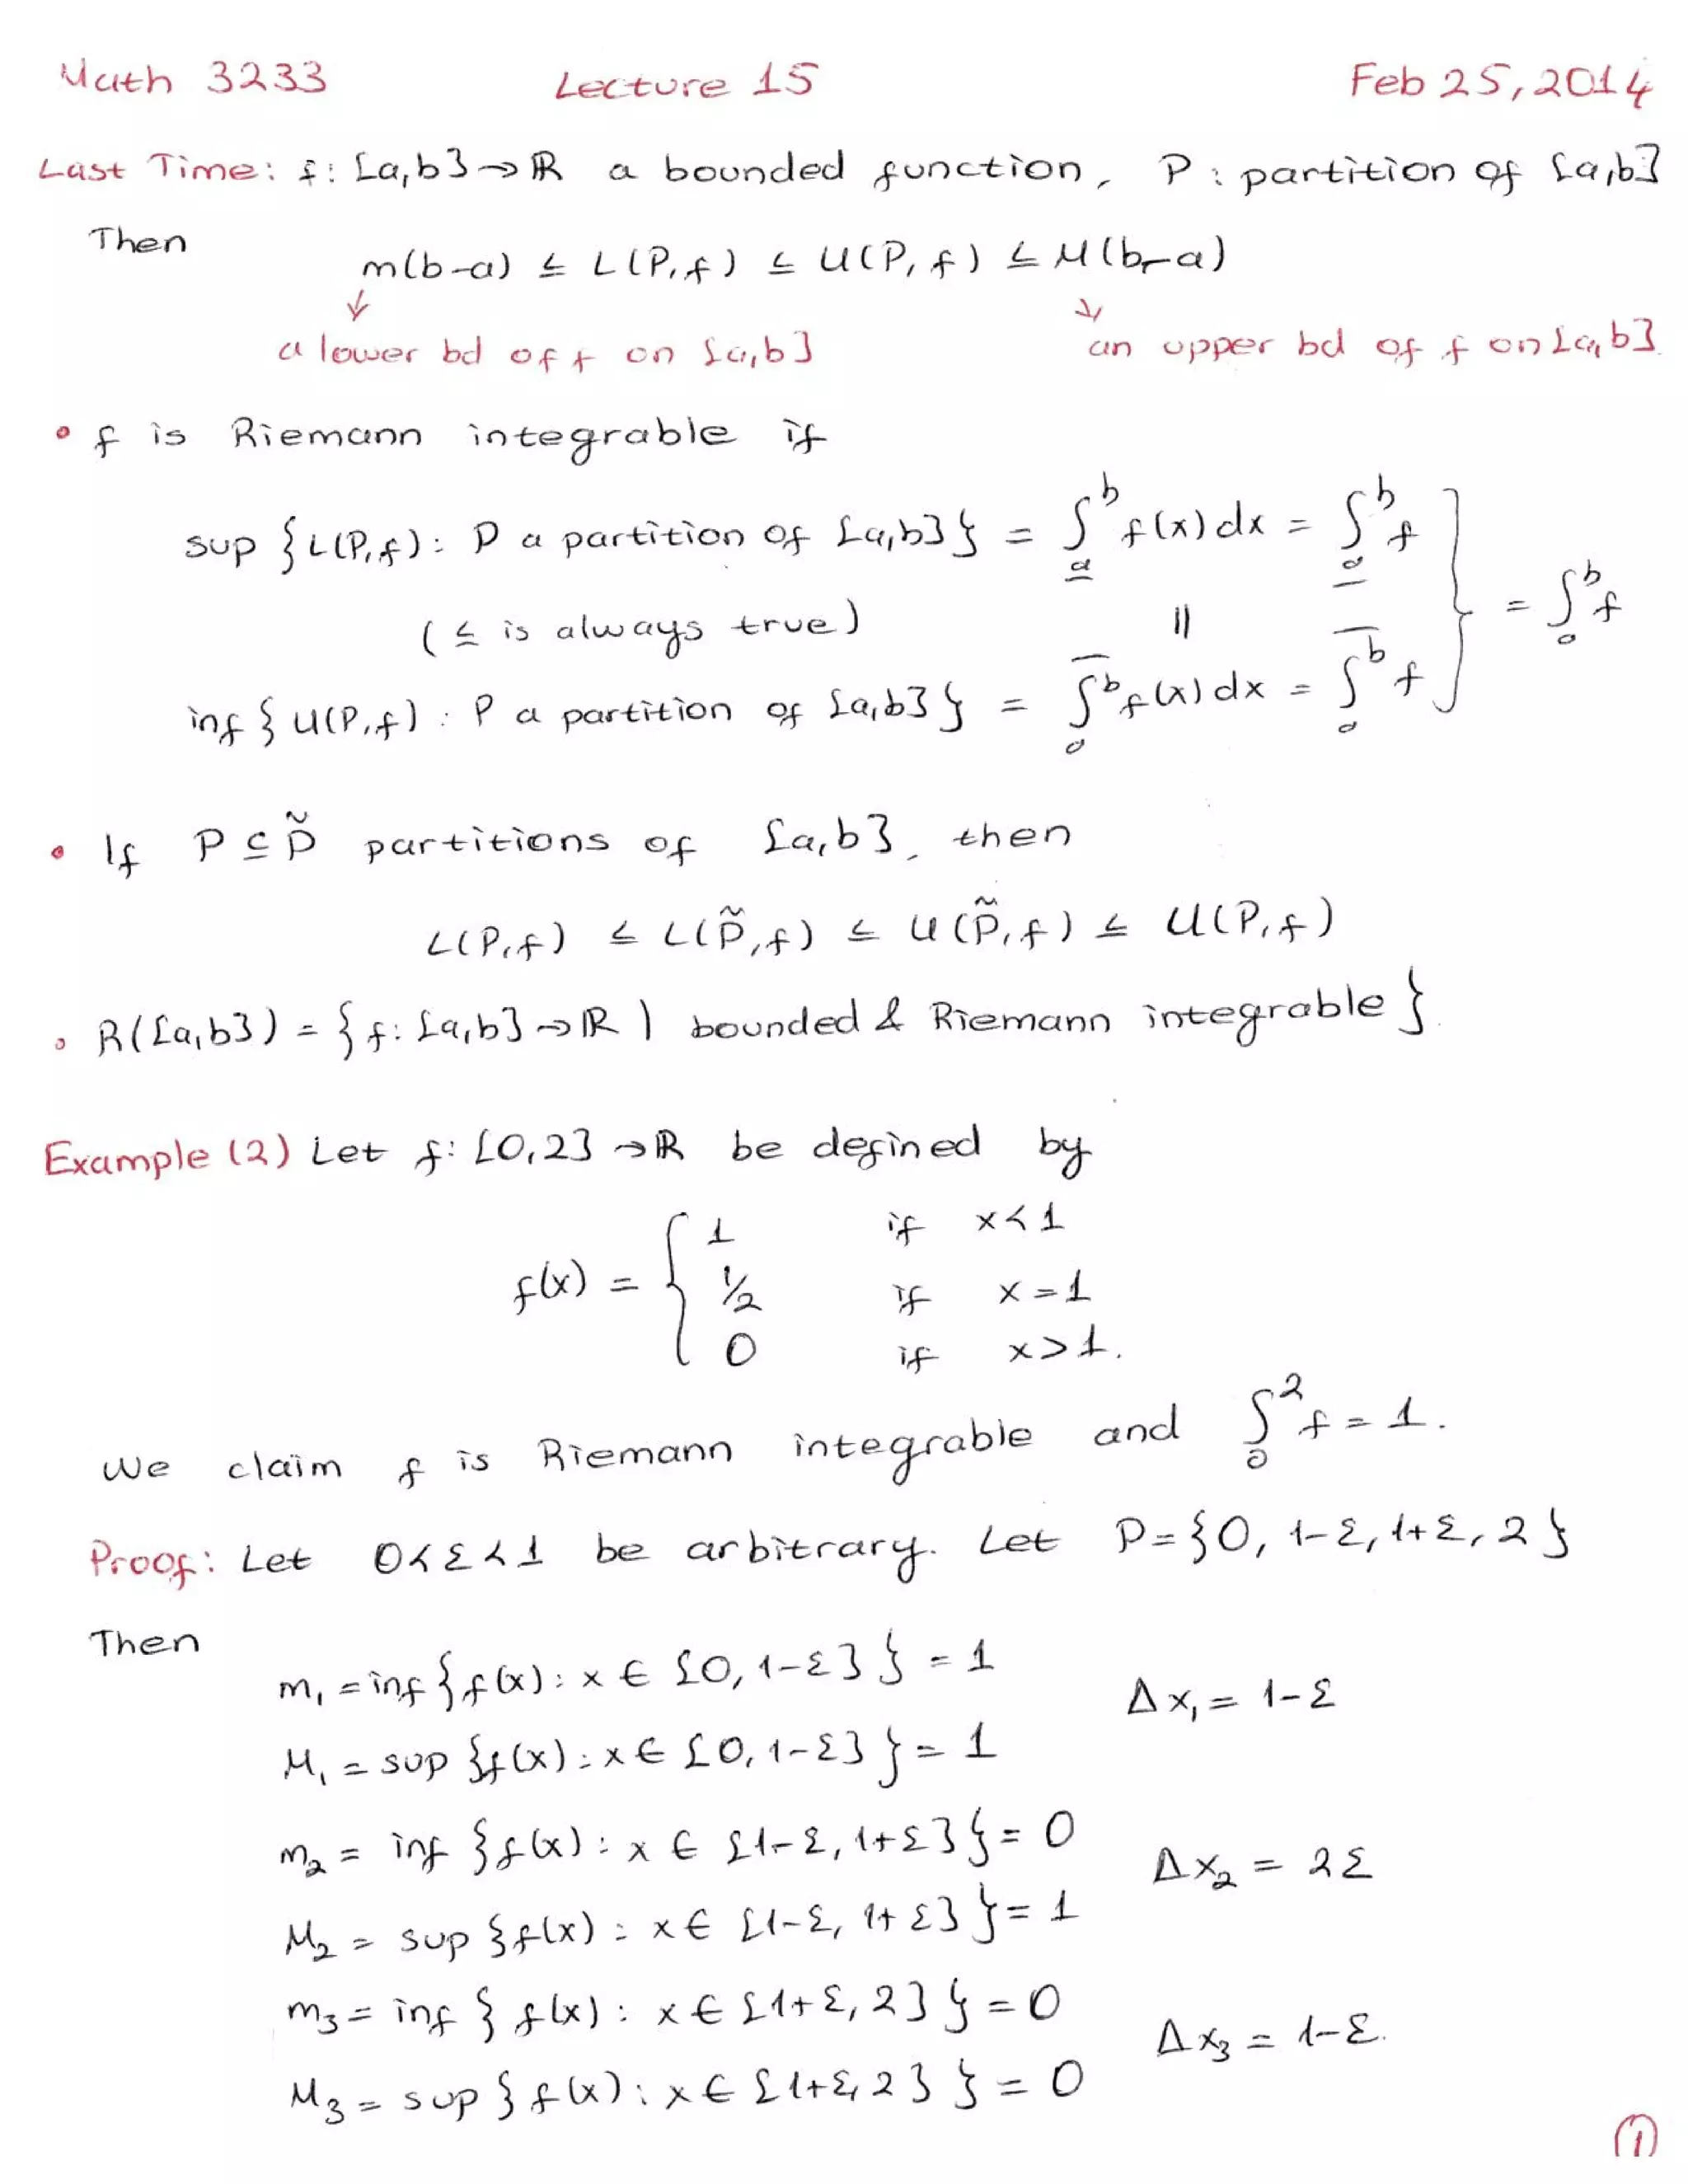 Math 3233 Lecture 15 Feb 25, 2014
Last Time: f: [a,b] → ℝ a bounded function, P: partition of [a,b]
Then
m(b-a) ≤ L(P,f) ≤ U(P,f) ≤ M(b-a)
↓ ↓
a lower bd of f on [a,b] an upper bd of f on [a,b].
• f is Riemann integrable if
sup {L(P,f): P a partition of [a,b]} = ∫̲ₐᵇ f(x) dx = ∫̲ₐᵇ f
(≤ is always true) || } = ∫ₐᵇ f
inf {U(P,f): P a partition of [a,b]} = ∫̅ₐᵇ f(x) dx = ∫̅ₐᵇ f
• If P ⊆ P̃ partitions of [a,b], then
L(P,f) ≤ L(P̃,f) ≤ U(P̃,f) ≤ U(P,f)
• R([a,b]) = {f: [a,b] → ℝ | bounded & Riemann integrable}
Example (2) Let f: [0,2] → ℝ be defined by
1 if x < 1
f(x) = { 1/2 if x = 1
0 if x > 1.
We claim f is Riemann integrable and ∫₀² f = 1.
Proof: Let 0 < ε < 1 be arbitrary. Let P = {0, 1-ε, 1+ε, 2}
Then
m₁ = inf {f(x): x ∈ [0, 1-ε]} = 1 Δx₁ = 1-ε
M₁ = sup {f(x): x ∈ [0, 1-ε]} = 1
m₂ = inf {f(x): x ∈ [1-ε, 1+ε]} = 0 Δx₂ = 2ε
M₂ = sup {f(x): x ∈ [1-ε, 1+ε]} = 1
m₃ = inf {f(x): x ∈ [1+ε, 2]} = 0 Δx₃ = 1-ε.
M₃ = sup {f(x): x ∈ [1+ε, 2]} = 0
①